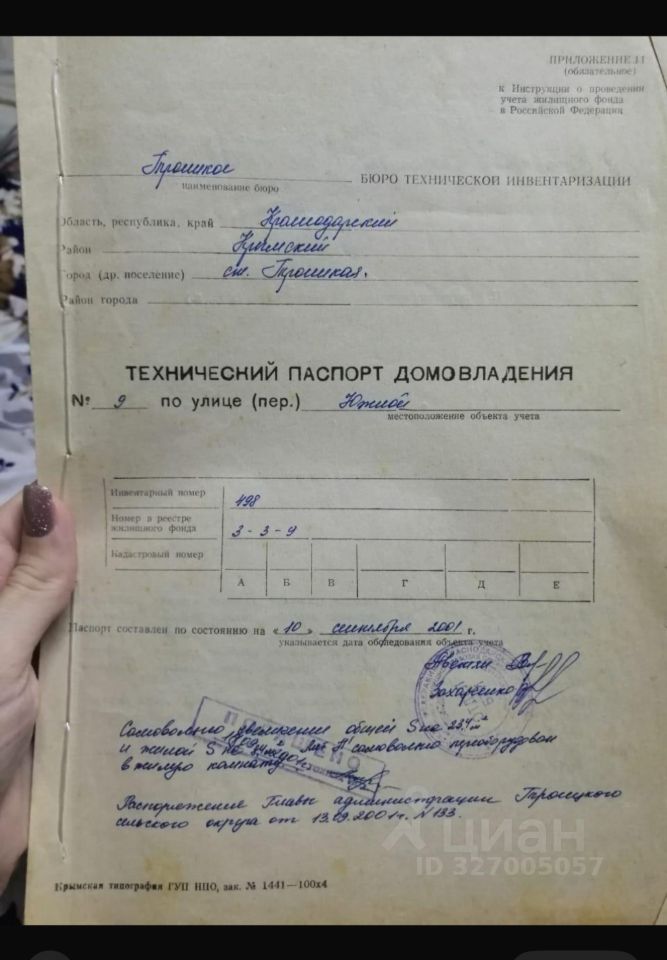 ПРИЛОЖЕНИЕ 11
(обязательное)
к Инструкции о проведении
учета жилищного фонда
в Российской Федерации
Троицкое
БЮРО ТЕХНИЧЕСКОЙ ИНВЕНТАРИЗАЦИИ
наименование бюро
Область, республика, край Краснодарский
Район Крымский
Город (др. поселение) ст. Троицкая.
Район города
ТЕХНИЧЕСКИЙ ПАСПОРТ ДОМОВЛАДЕНИЯ
№ 9 по улице (пер.) Южной
местоположение объекта учета
Инвентарный номер 498
Номер в реестре
жилищного фонда 3-3-9
Кадастровый номер
А Б В Г Д Е
Паспорт составлен по состоянию на «10» сентября 2001 г.
указывается дата обследования объекта учета
Захарченко
ПОГАШЕНО
Самовольно увеличении общей S на 23,4 м²
и жилой S на Лит П самовольно переоборудован
в жилую комнату
Распоряжение Главы администрации Троицкого
сельского округа от 13.09.2001г. N 133.
циан
ID 327005057
Крымская типография ГУП НПО, зак. № 1441—100х4